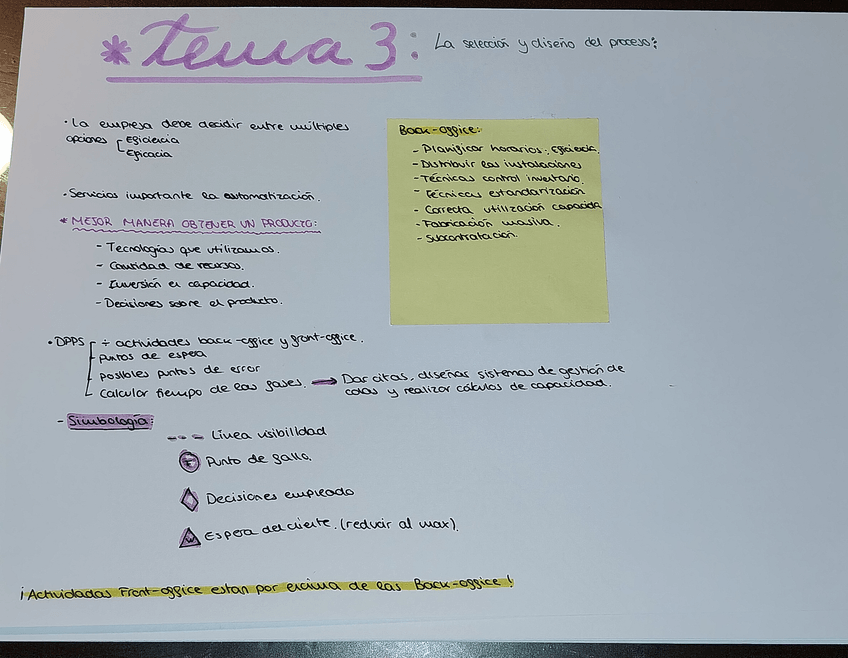 *Tema 3:
La selección y diseño del proceso:
· La empresa debe decidir entre múltiples
opciones
Eficiencia
Eficacia
· Servicios importante la automatización.
* MEJOR MANERA OBTENER UN PRODUCTO:
- Tecnologías que utilizamos.
- Cantidad de recursos.
- Inversión en capacidad.
- Decisiones sobre el producto.
Back-office:
- Planificar horarios, eficiencia.
- Distribuir las instalaciones
- Técnicas control inventario.
- Técnicas estandarización
- Correcta utilización capacidad
- Fabricación masiva.
- Subcontratación.
· DPPS
÷ actividades back-office y front-office.
- puntos de espera
- posibles puntos de error
- calcular tiempo de las fases. → Dar citas, diseñar sistemas de gestión de
colas y realizar cálculos de capacidad.
- Simbología:
--- Línea visibilidad
F Punto de fallo.
Decisiones empleado
W Espera del cliente. (reducir al max).
¡Actividades Front-office estan por encima de las Back-office!